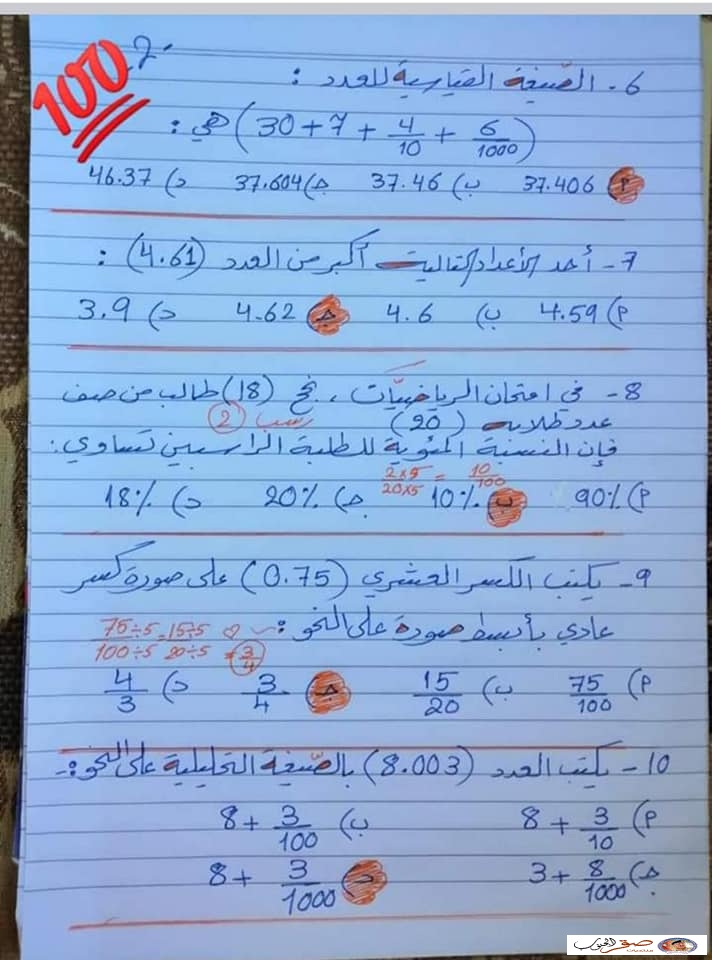 100
2-
6- الصّيغة القياسية للعدد :
(30+7+4/10+6/1000) هي :
أ) 37.406 ب) 37.46 جـ) 37.604 د) 46.37
7- أحد الأعداد التالية أكبر من العدد (4.61) :
أ) 4.59 ب) 4.6 جـ) 4.62 د) 3.9
8- في امتحان الرياضيّات ، نجح (18) طالب من صف
عدد طلابه (20) رسب 2
فإن النسبة المئوية للطلبة الراسبين تساوي :
2×5/20×5 = 10/100
أ) 90% ب) 10% جـ) 20% د) 18%
9- يكتب الكسر العشري (0.75) على صورة كسر
عادي بأبسط صورة على النحو :
75÷5/100÷5 = 15÷5/20÷5 = 3/4
أ) 75/100 ب) 15/20 جـ) 3/4 د) 4/3
10- يكتب العدد (8.003) بالصّيغة التحليلية على النحو :-
أ) 8+3/10 ب) 8+3/100
جـ) 3+8/1000 د) 8+3/1000
صقر الجنوب